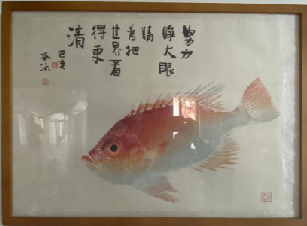 努力
睁大眼
睛
想把
世界看
得更
清
己亥